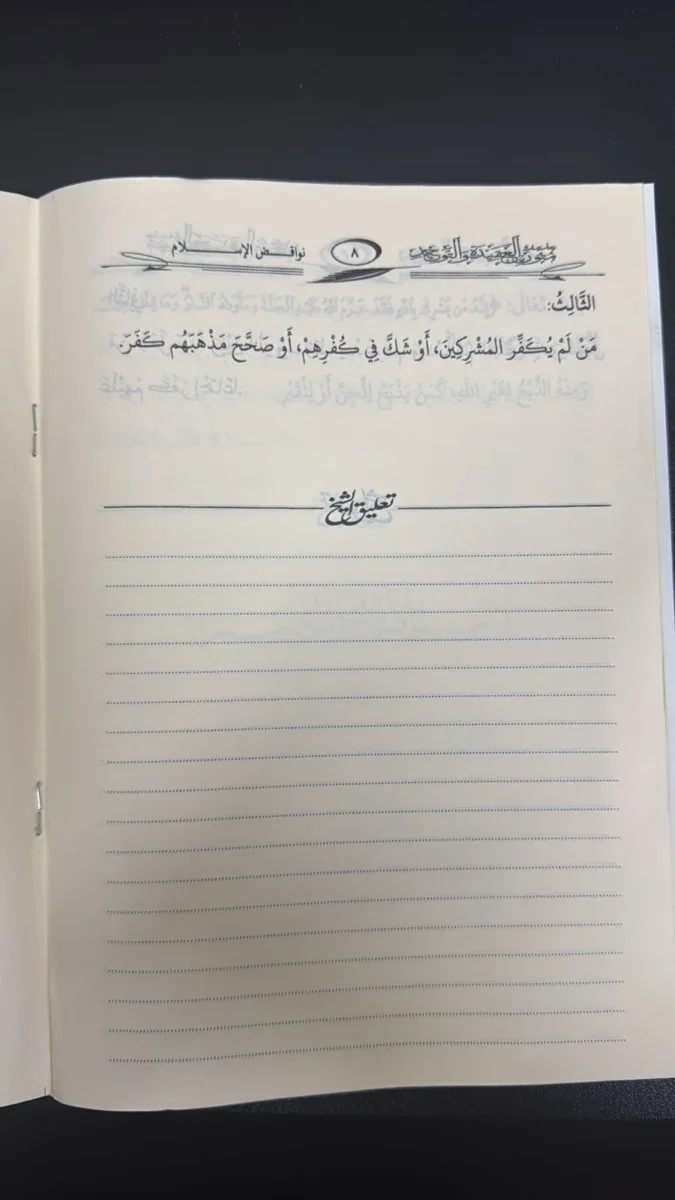 سلسلة متون العقيدة والتوحيد ٨ نواقض الإسلام
الثَّالِثُ:
مَنْ لَمْ يُكَفِّرِ المُشْرِكِينَ، أَوْ شَكَّ فِي كُفْرِهِمْ، أَوْ صَحَّحَ مَذْهَبَهُم كَفَرَ.
تعليق الشيخ